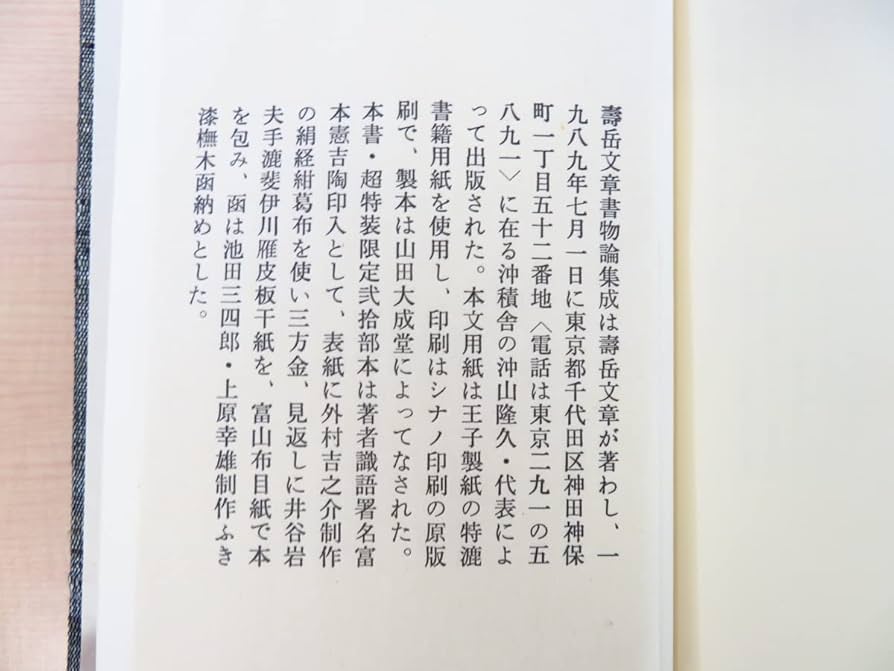 壽岳文章書物論集成は壽岳文章が著わし、一
九八九年七月一日に東京都千代田区神田神保
町一丁目五十二番地〈電話は東京二九一の五
八九一〉に在る沖積舎の沖山隆久・代表によ
って出版された。本文用紙は王子製紙の特漉
書籍用紙を使用し、印刷はシナノ印刷の原版
刷で、製本は山田大成堂によってなされた。
本書・超特装限定弐拾部本は著者識語署名富
本憲吉陶印入として、表紙に外村吉之介制作
の絹経紺葛布を使い三方金、見返しに井谷岩
夫手漉斐伊川雁皮板干紙を、富山布目紙で本
を包み、函は池田三四郎・上原幸雄制作ふき
漆橅木函納めとした。